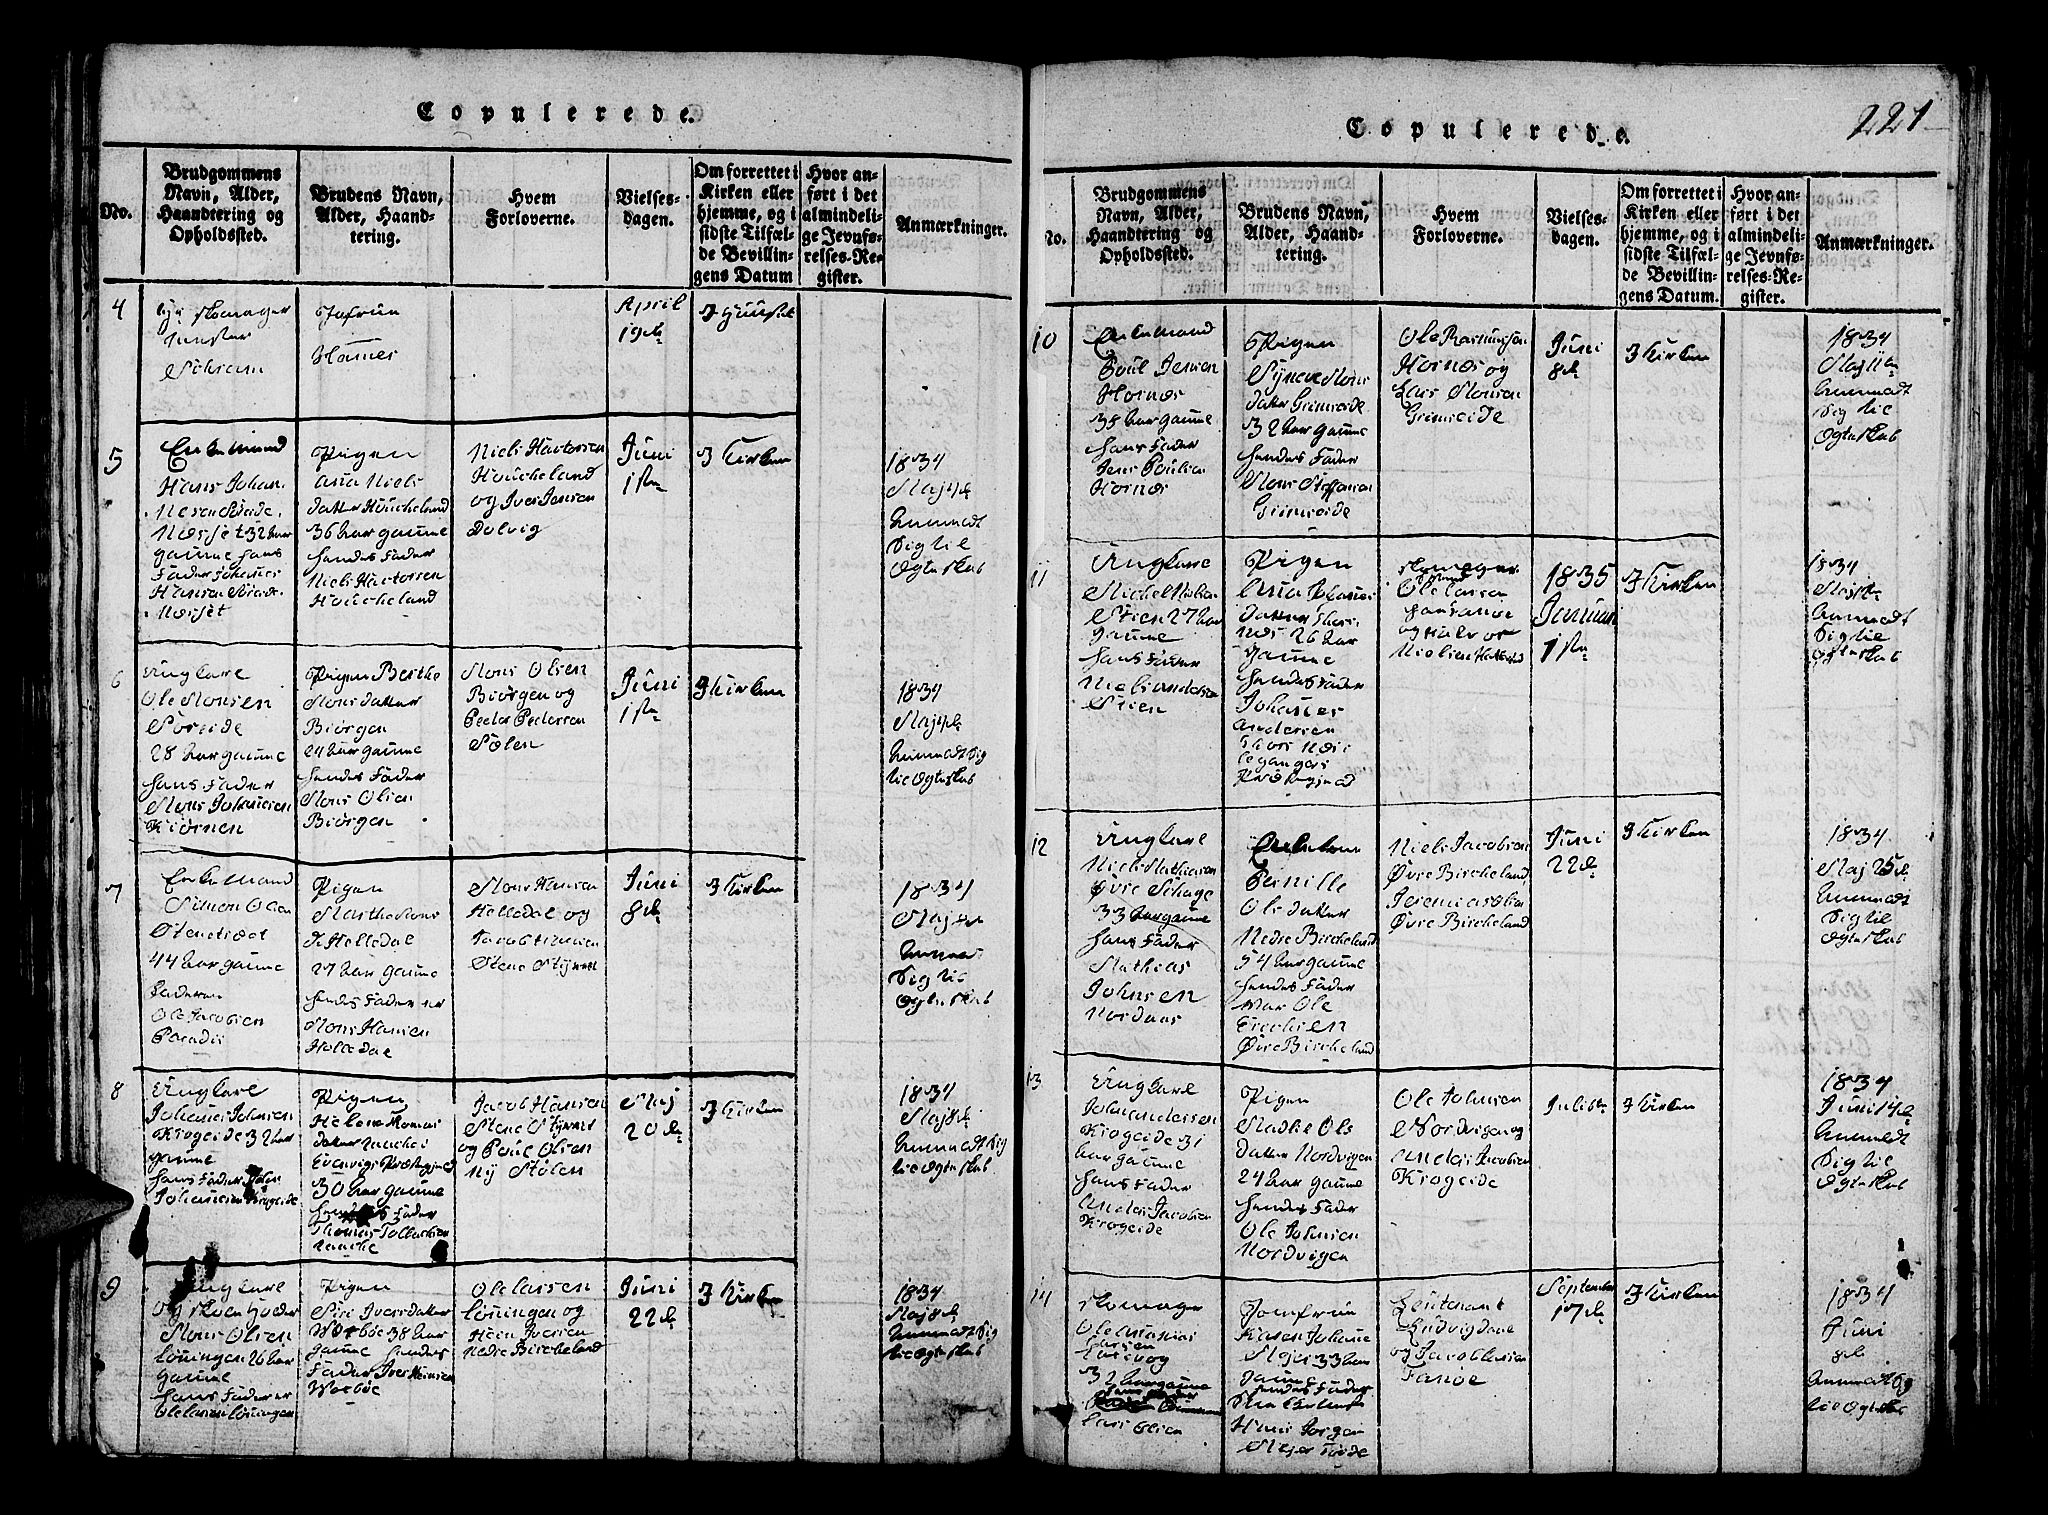 Copulerede.
No.
Brudgommens
Navn, Alder,
Haandtering og
Opholdssted.
Brudens Navn,
Alder, Haand-
tering.
Hvem
Forloverne.
Vielses-
dagen.
Om forrettet i
Kirken eller
hjemme, og i
sidste Tilfæl-
de Bevillin-
gens Datum
Hvor an-
ført i det
almindeli-
ge Jevnfø-
relses-Re-
gister.
Anmærkninger.
4
Skomager
Schram
Jofrue
Hannes
April
19de
5
Enkemand
Hans Johan-
nesen
32 aar
gamme hans
Fader Johannes
Hansen
Pigen
Ana Niels
datter Houcheland
36 aar gamme
hendes Fader
Niels Hactorsen
Houcheland
Niels Hactorsen
Houcheland
og Iver Jensen
Dolvig
Juni
1ste
I Kirken
1834
Maj
Anmeldt
Sig til
Ogteskab
6
Ungkarl
Ole Monsen
Søreide
28 aar gamme
hans Fader
Mons Johannesen
Kiørnen
Pigen Berthe
Monsdatter
Biørgen
24 aar gamme
hendes Fader
Mons Olsen
Biørgen
Mons Olsen
Biørgen og
Peder Pedersen
Solen
Juni
1ste
I Kirken
1834
Maj
Anmeldt Sig
til Ogteskab
7
Enkemand
Simon Olsen
44 aar gamme
Faderen
Ole Jacobsen
Paradis
Pigen
Marthe Mons
D Helledal
27 aar gamme
hendes Fader er
Mons Hansen
Helledal
Mons Hansen
Helledal og
Jacob Hansen
Stene
Juni
8de
I Kirken
1834
Maj
Sig til
Ogteskab
8
Ungkarl
Johannes Johnsen
Krogeide 32 aar
gamme
hans Fader John
Johannesen Krogeide
Pigen
Helene Thomas
datter
Evenvigs Præstegjeld
30 aar gamme
hendes Fader
Thomas Tollachsen
Jacob Hansen
Stene
og Poul Olsen
Ny Stølen
Maj
20de
I Kirken
1834
Maj 8de
Anmeldt Sig
til Ogteskab
9
Ungkarl
og Skoleholder
Mons Olsen
Løningen 26 aar
gamme
hans Fader er
Ole Larsen Løningen
Pigen
Siri Iversdatter
38 aar
gamme hendes
Fader Iver Heinsen
Ole Larsen
Løningen og
Heen Iversen
Nedre Bircheland
Juni
22de
I Kirken
1834
Maj 8de
Anmeldt Sig
til Ogteskab
221
Copulerede.
No.
Brudgommens
Navn, Alder,
Haandtering og
Opholdssted.
Brudens Navn,
Alder, Haand-
tering.
Hvem
Forloverne.
Vielses-
dagen.
Om forrettet i
Kirken eller
hjemme, og i
sidste Tilfæl-
de Bevillin-
gens Datum.
Hvor an-
ført i det
almindeli-
ge Jevnfø-
relses-Re-
gister.
Anmærkninger.
10
Enkemand
Poul Jensen
Hornæs
38 aar gamme
hans Fader
Jens Poulsen
Hornæs
Pigen
Syneve Mons
datter Grimseide
32 aar gamme
hendes Fader
Mons Steffensen
Grimseide
Ole Rasmussen
Hornæs og
Lars Monsen
Grimseide
Juni
8de
I Kirken
1834
Maj
Anmeldt
Sig til
Ogteskab
11
Ungkarl
Michel Nielsen
Stien 27 aar
gamme
hans Fader
Niels Andersen
Stien
Pigen
Ana Johannes
datter
26 aar
gamme
hendes Fader
Johannes
Andersen
Præstegjeld
Skomager
Ole Larsen
og Halvor
Nielsen
1835
Januari
1ste
I Kirken
1834
Maj
Anmeldt
Sig til
Ogteskab
12
Ungkarl
Niels Mathiasen
Øvre Schage
33 aar gamme
hans Fader
Mathias
Johnsen
Nordaas
Enkekone
Pernille
Olsdatter
Nedre Bircheland
54 aar gamme
hendes Fader
var Ole
Erichsen
Øvre Bircheland
Niels Jacobsen
Øvre Bircheland
Jeremias Olsen
Øvre Bircheland
Juni
22de
I Kirken
1834
Maj 25de
Anmeldt
Sig til
Ogteskab
13
Ungkarl
John Andersen
Krogeide 31
aar gamme
hans Fader
Anders Jacobsen
Krogeide
Pigen
Madle Ols
datter Nordvigen
24 aar gamme
hendes Fader
Ole Johnsen
Nordvigen
Ole Johnsen
Nordvigen og
Anders Jacobsen
Krogeide
Juli 6te
I Kirken
1834
Juni 14de
Anmeldt
Sig til
Ogteskab
14
Skomager
Ole
Larsen
32 aar gamme
hans Fader
Lars Olsen
Jomfrue
Karen Johanne
Mejer 33 aar
gamme
hendes Fader
Hans Jørgen
Mejer
Leutenant
Ludvig Dahl
og Jacob Larsen
Fanøe
September
17de
I Kirken
1834
Juni
8de
Anmeldt Sig
til Ogteskab